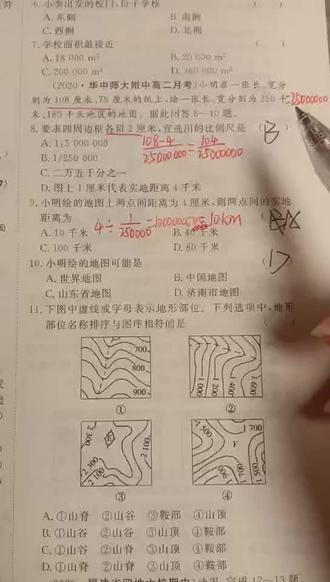 6.小李出发的校门,位于学校
A.东侧 B.南侧
C.西侧 D.北侧
7.学校面积最接近
A.18 000 m² B.20 000 m²
C.200 000 m² D.360 000 m²
(2020·华中师大附中高二月考)小明在一张长、宽分
别为108厘米、76厘米的纸上,绘一张长、宽分别为250千 25000000
米、180千米地区的地图。据此回答8~10题。
8.要求四周边框各留2厘米,宜选用的比例尺是 ( B
A.1:5 000 000 108-4/25000000 = 104/25000000
B.1/250 000
C.二万五千分之一
D.图上1厘米代表实地距离4千米
9.小明绘的地图上两点间距离为4厘米,则两点间的实地
距离为 4÷1/250000=1000000 =10km
A.10千米 B.40千米
C.100千米 D.80千米
10.小明绘的地图可能是 ( D
A.世界地图 B.中国地图
C.山东省地图 D.济南市地图
11.下图中虚线或字母表示地形部位。下列选项中,地形
部位名称排序与图序相符的是 ( )
700
800
900
①
1 000 1 200 1 400 1 600
②
2 300 2 300 2 100
③
1 500 1 700 F 1 500 1 700
④
A.①山脊 ②山谷 ③鞍部 ④山顶
B.①山脊 ②山谷 ③山顶 ④鞍部
C.①山谷 ②山脊 ③山顶 ④鞍部
D.①山谷 ②山脊 ③鞍部 ④山顶